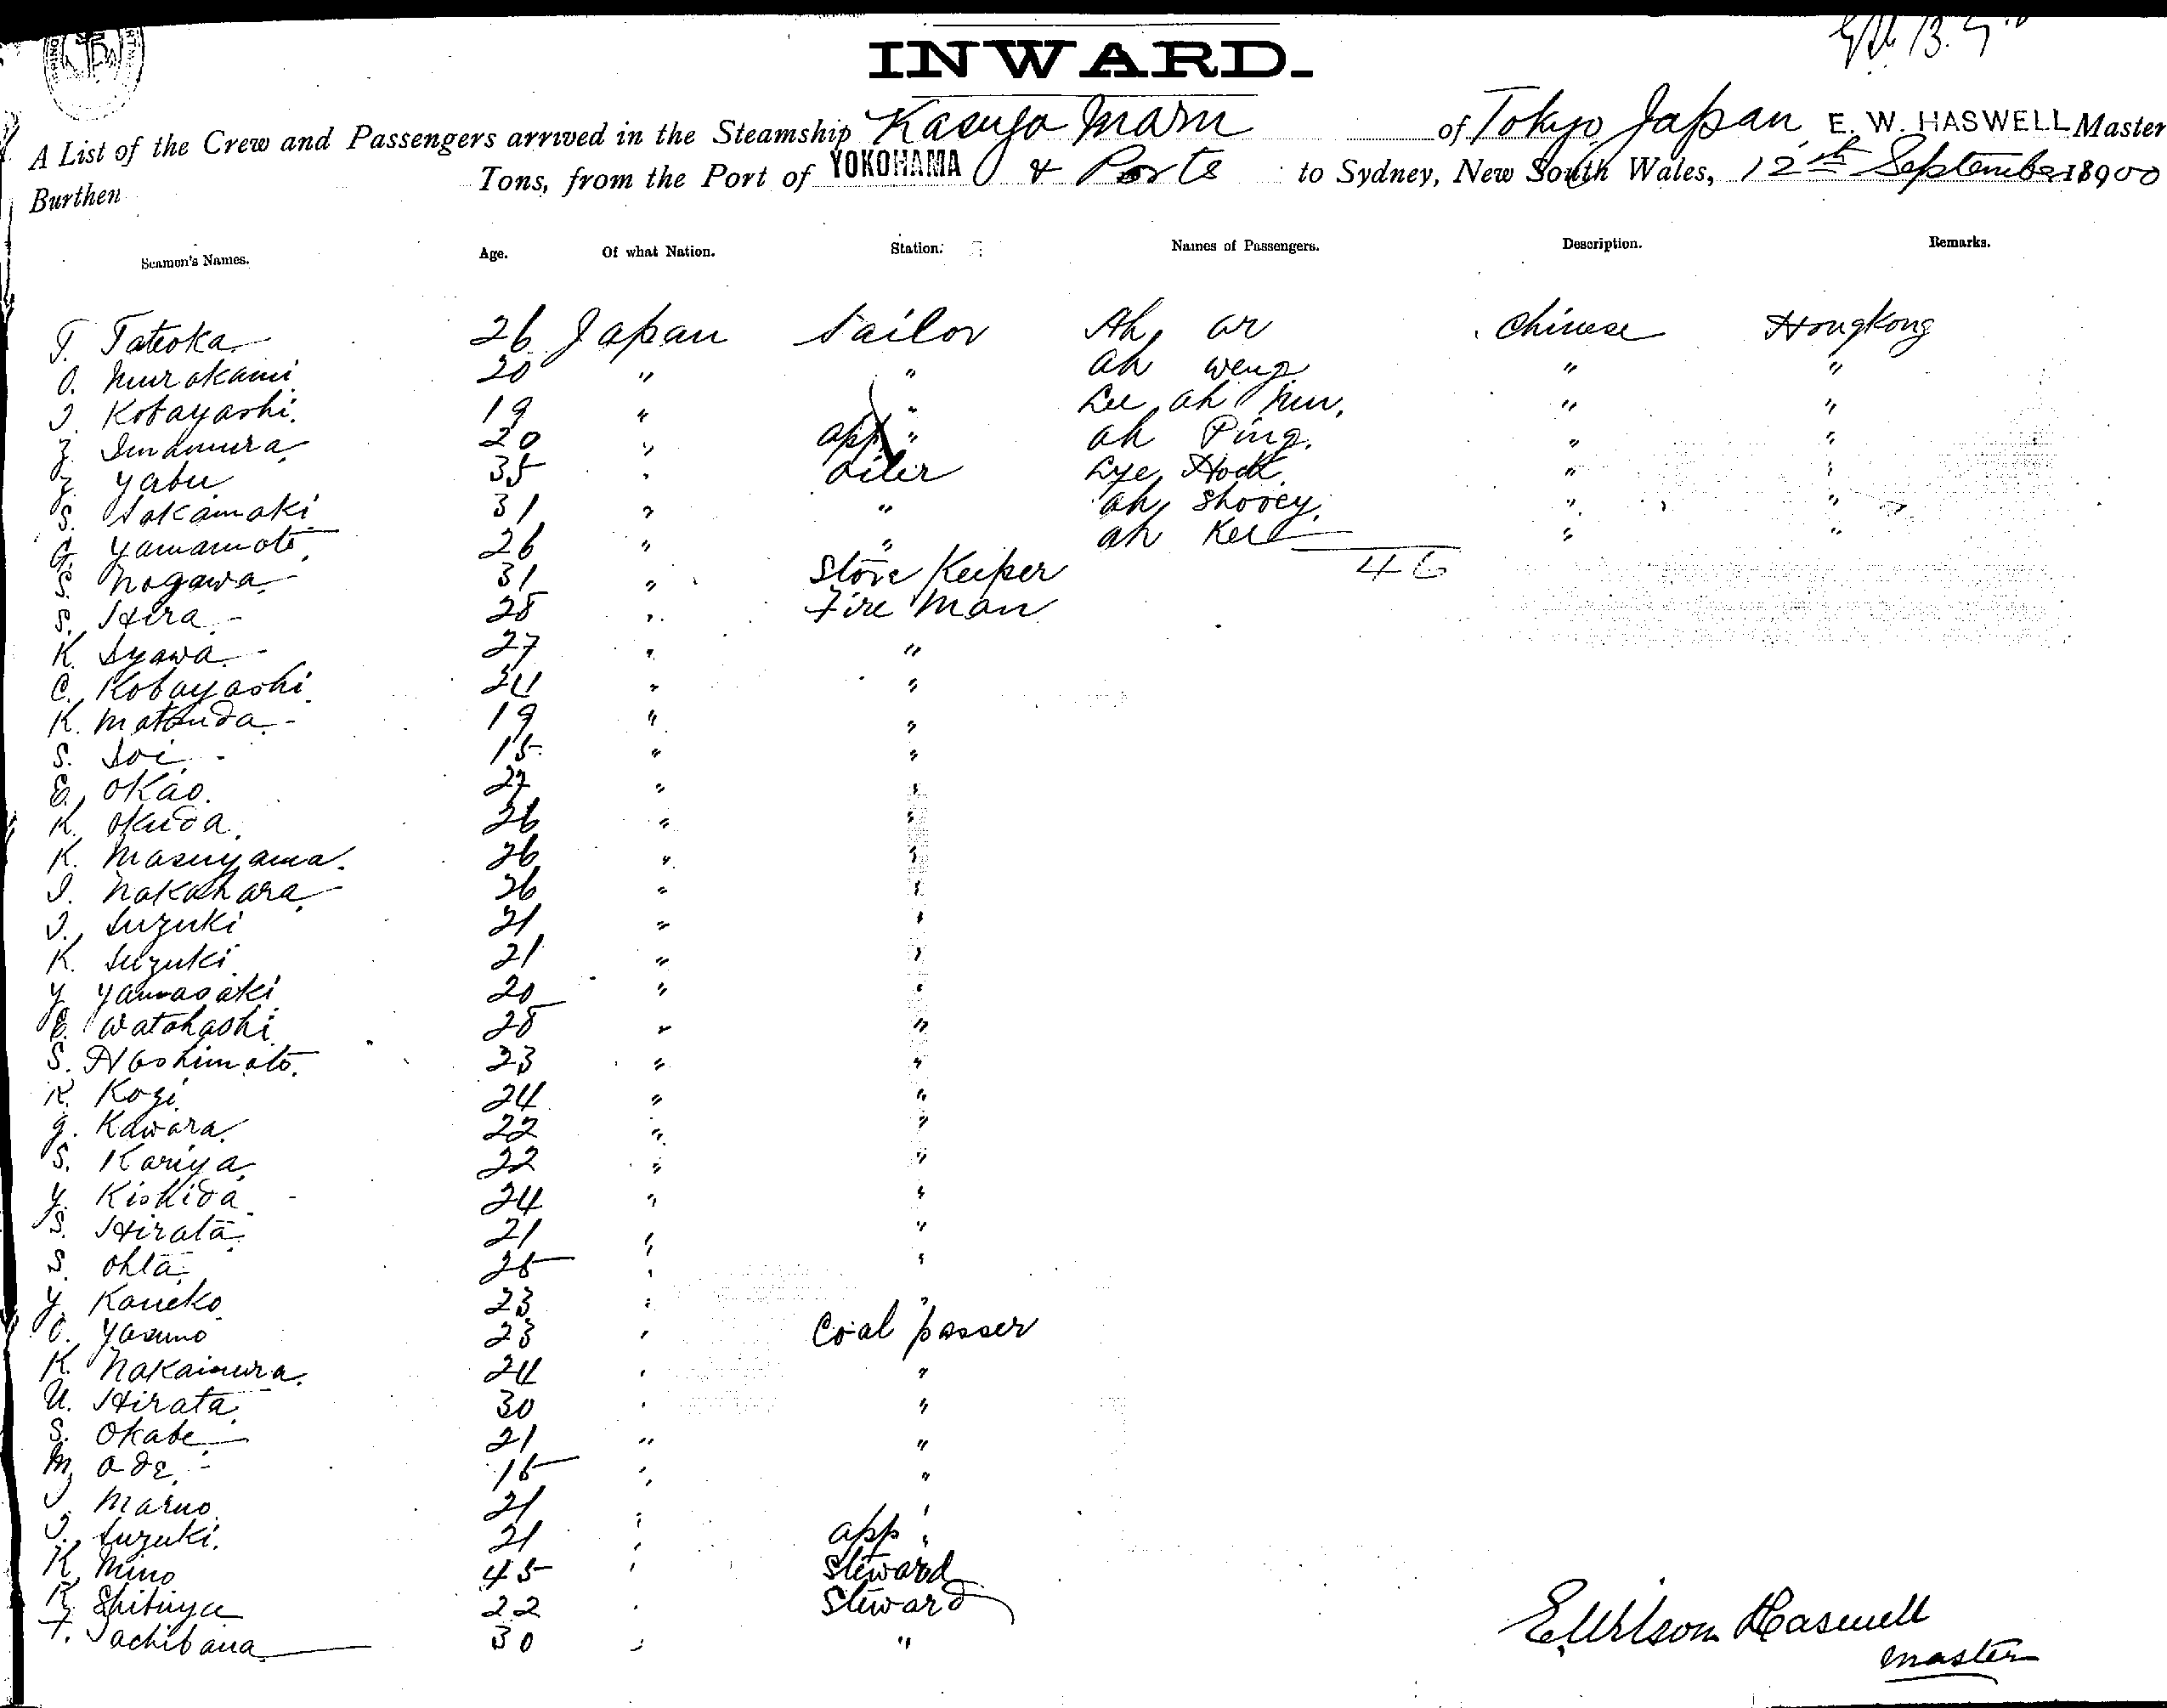 INWARD.
A List of the Crew and Passengers arrived in the Steamship Kasuga Maru of Tokyo Japan E. W. HASWELL Master
Burthen Tons, from the Port of YOKOHAMA & Ports to Sydney, New South Wales, 12th September 18900
Seamen's Names. Age. Of what Nation. Station. Names of Passengers. Description. Remarks.
T. Tateoka 26 Japan Sailor Ah ar Chinese Hongkong
O. Murakami 20 " " ah weng " "
J. Kobayashi. 19 " " Lee ah " "
Z. Imamura 20 " app " ah Ping. " "
Z. Yabu 35 " Oiler Lye Hock " "
S. Sakamaki 31 " " ah Shooey. " "
G. Yamamoto. 26 " " ah Kee " "
S. Nogawa 31 " Store Keeper 46
S. Hira 28 " Fire Man
K. 27 " "
C. Kobayashi 24 " "
K. Matsuda 19 " "
S. Doi 18 " "
E. Okao. 27 " "
K. Okuda. 26 " "
K. Masuyama. 26 " "
I. Nakahara. 26 " "
J. Suzuki 21 " "
K. Suzuki 21 " "
Y. Yamasaki 20 " "
E. Watahashi 28 " "
S. Hashimoto. 23 " "
K. Kogi. 24 " "
G. Kawara. 22 " "
S. Kariya 22 " "
Y. Kishida 24 " "
S. Hirata 21 " "
S. Ohta 25 " "
Y. Kaneko 23 " "
O. Yasuno 23 " Coal passer
K. Nakamura. 24 " "
U. Hirata 30 " "
S. Okabe 21 " "
M. Ode 18 " "
J. Maruo. 21 " "
J. Suzuki. 21 " app "
K. Mino 45 " Steward
K. Shibuya 22 " Steward
T. Tachibana 30 " "
E. Wilson Haswell
Master